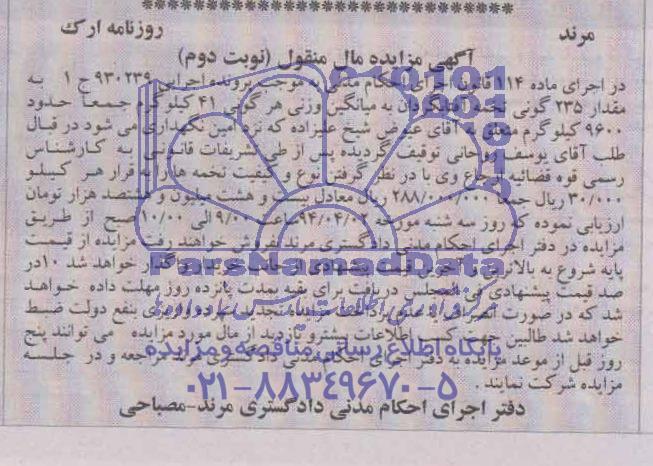 مرند
روزنامه ارک
آگهی مزایده مال منقول (نوبت دوم)
در اجرای ماده ۱۱۴ قانون اجرای احکام مدنی به موجب پرونده اجرایی ۹۳۰۲۳۹ ج ۱ به
مقدار ۲۳۵ گونی تخمه آفتابگردان به میانگین وزنی هر گونی ۴۱ کیلو گرم جمعا حدود
۹۶۰۰ کیلو گرم متعلق به آقای شیخ علیزاده که نزد امین نگهداری می شود در قبال
طلب آقای یوسف روحانی توقیف گردیده پس از طی تشریفات قانونی به کارشناس
رسمی قوه قضائیه ارجاع وی با در نظر گرفتن نوع و کیفیت تخمه ها را به قرار هر کیلو
۳۰/۰۰۰ ریال جمعا ۲۸۸/۰۰۰/۰۰۰ ریال معادل بیست و هشت میلیون و هشتصد هزار تومان
ارزیابی نموده که روز سه شنبه مورخه ۹۴/۰۴/۰۲ ساعت ۹/۰۰ الی ۱۰/۰۰ صبح از طریق
مزایده در دفتر اجرای احکام مدنی دادگستری مرند بفروش خواهند رفت مزایده از قیمت
پایه شروع به بالاترین و آخرین قیمت پیشنهادی از جانب خریدار واگذار خواهد شد ۱۰در
صد قیمت پیشنهادی فی المجلس دریافت برای بقیه بمدت پانزده روز مهلت داده خواهد
شد که در صورت انصراف یا عدم پرداخت مزایده تجدید سپرده واریزی بنفع دولت ضبط
خواهد شد طالبین جهت کسب اطلاعات بیشترو بازدید از مال مورد مزایده می توانند پنج
روز قبل از موعد مزایده به دفتر اجرای احکام مدنی دادگستری مرند مراجعه و در جلسه
مزایده شرکت نمایند .
دفتر اجرای احکام مدنی دادگستری مرند-مصباحی
ParsNamadData
پایگاه اطلاع رسانی مناقصه و مزایده
۰۲۱-۸۸۳۴۹۶۷۰-۵